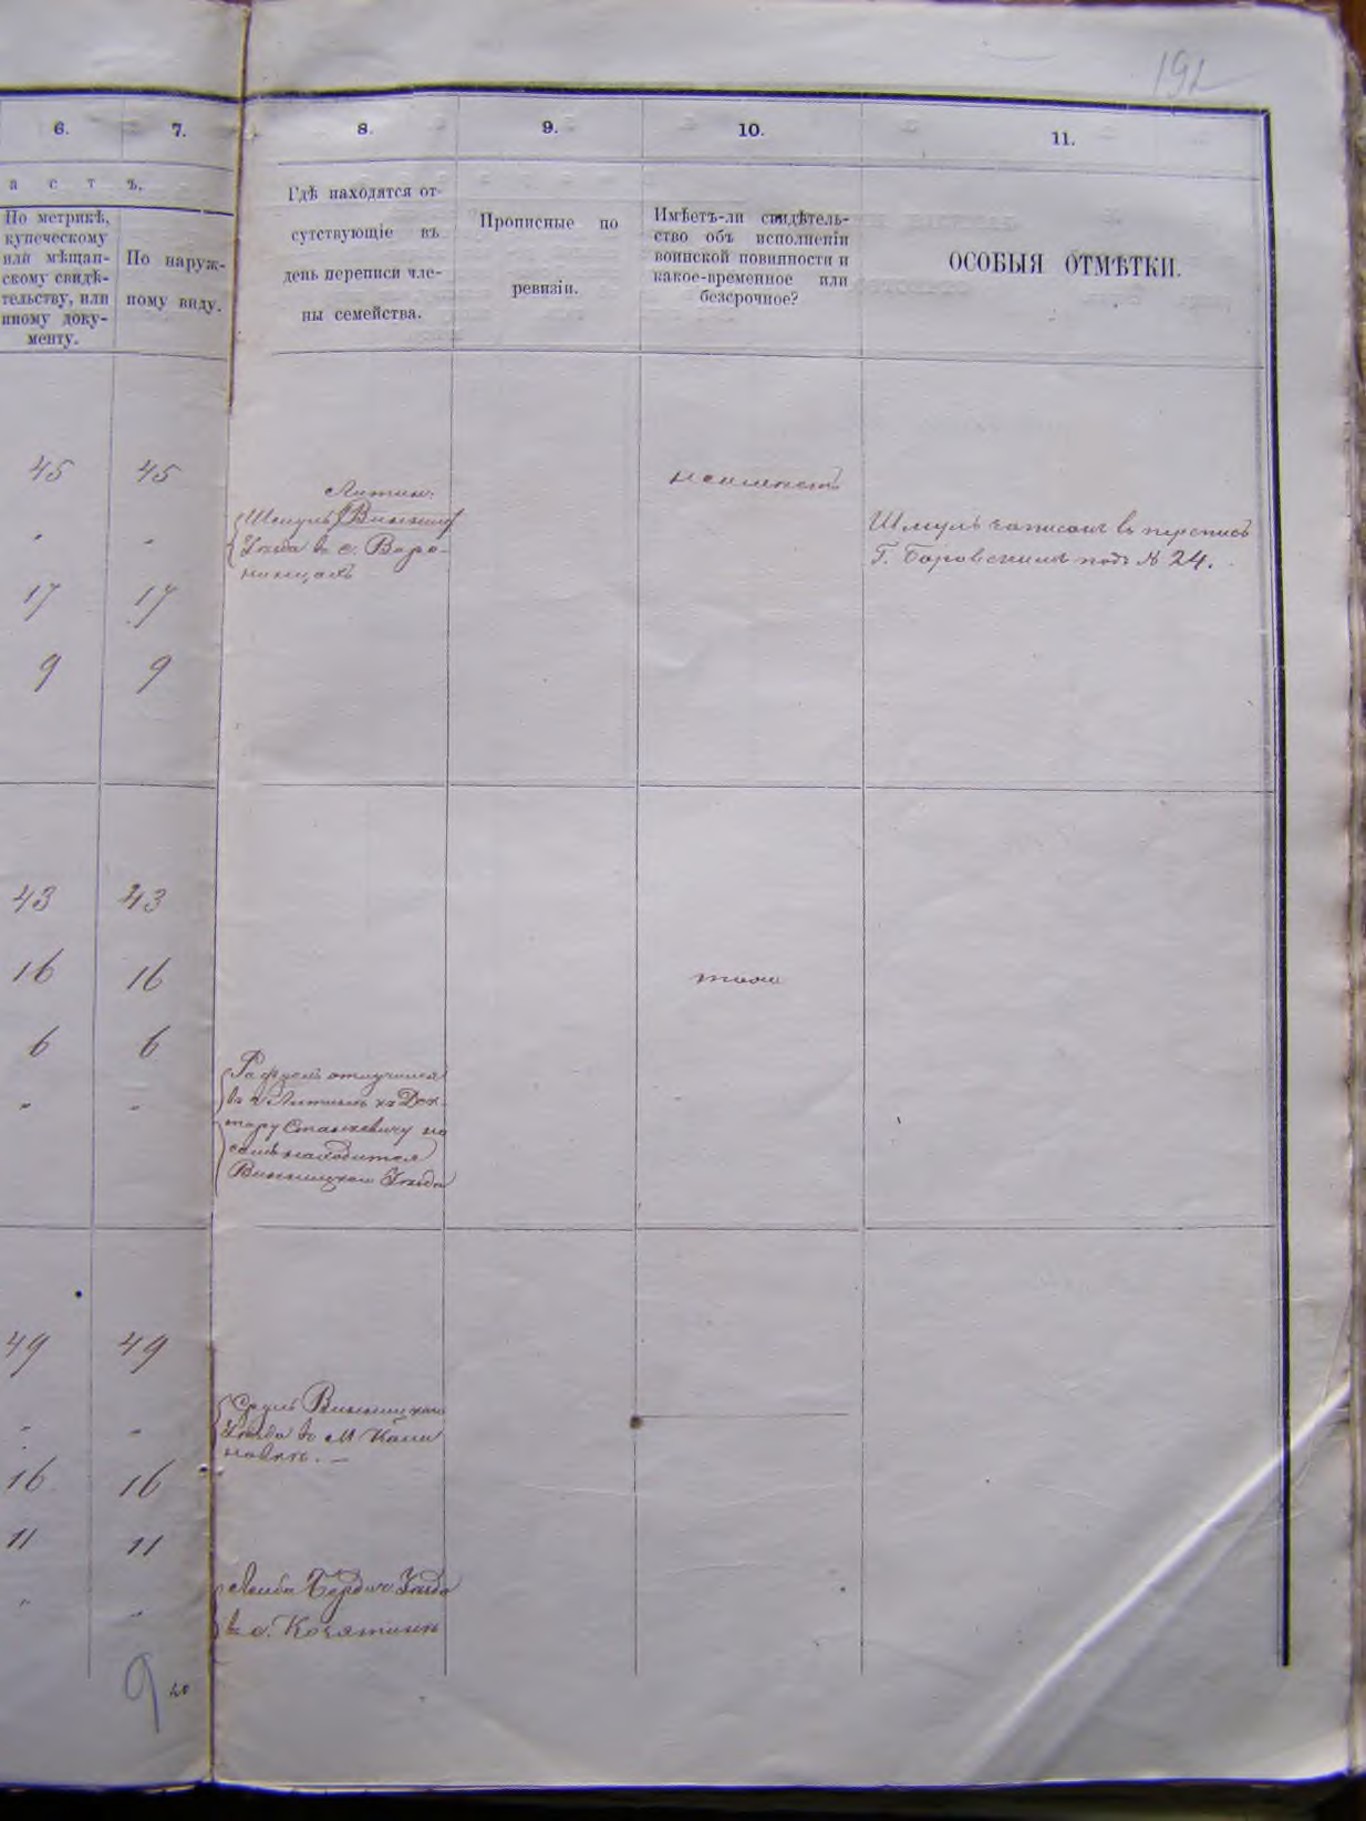 192
6. 7. 8. 9. 10. 11.
а с т ъ.
По метрикѣ,
купеческому
или мѣщан-
скому свидѣ-
тельству, или
иному доку-
менту.
По наруж-
ному виду.
Гдѣ находятся от-
сутствующіе въ
день переписи чле-
ны семейства.
Прописные по
ревизіи.
Имѣетъ-ли свидѣтель-
ство объ исполненіи
воинской повинности и
какое-временное или
безсрочное?
ОСОБЫЯ ОТМѢТКИ.
45 45
" "
17 17
9 9
Литин.
Шмуль Винниц
Уѣзда въ с. Воро-
ницахъ
неимѣетъ
Шмуль записанъ въ перепись
Г. Боровскимъ подъ № 24.
43 43
16 16
6 6
" "
Рафуль отлучился
въ г. Литинъ къ Док-
тору Станкевичу но
самъ находится
Винницкаго Уѣзда
тоже
49 49
" "
16 16
11 11
" "
Сруль Винницкаго
Уѣзда въ м Кали
новкѣ. —
Лейба Бердич Уѣзда
въ с.
9